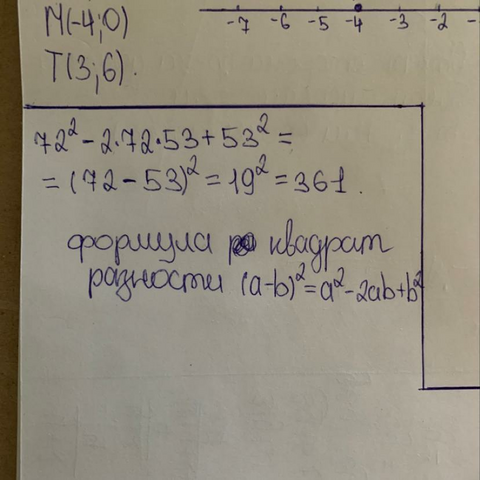 M(-4;0)
-7 -6 -5 -4 -3 -2
T(3;6).
72² - 2·72·53 + 53² =
= (72 - 53)² = 19² = 361.
формула квадрат
разности (a-b)² = a² - 2ab + b²